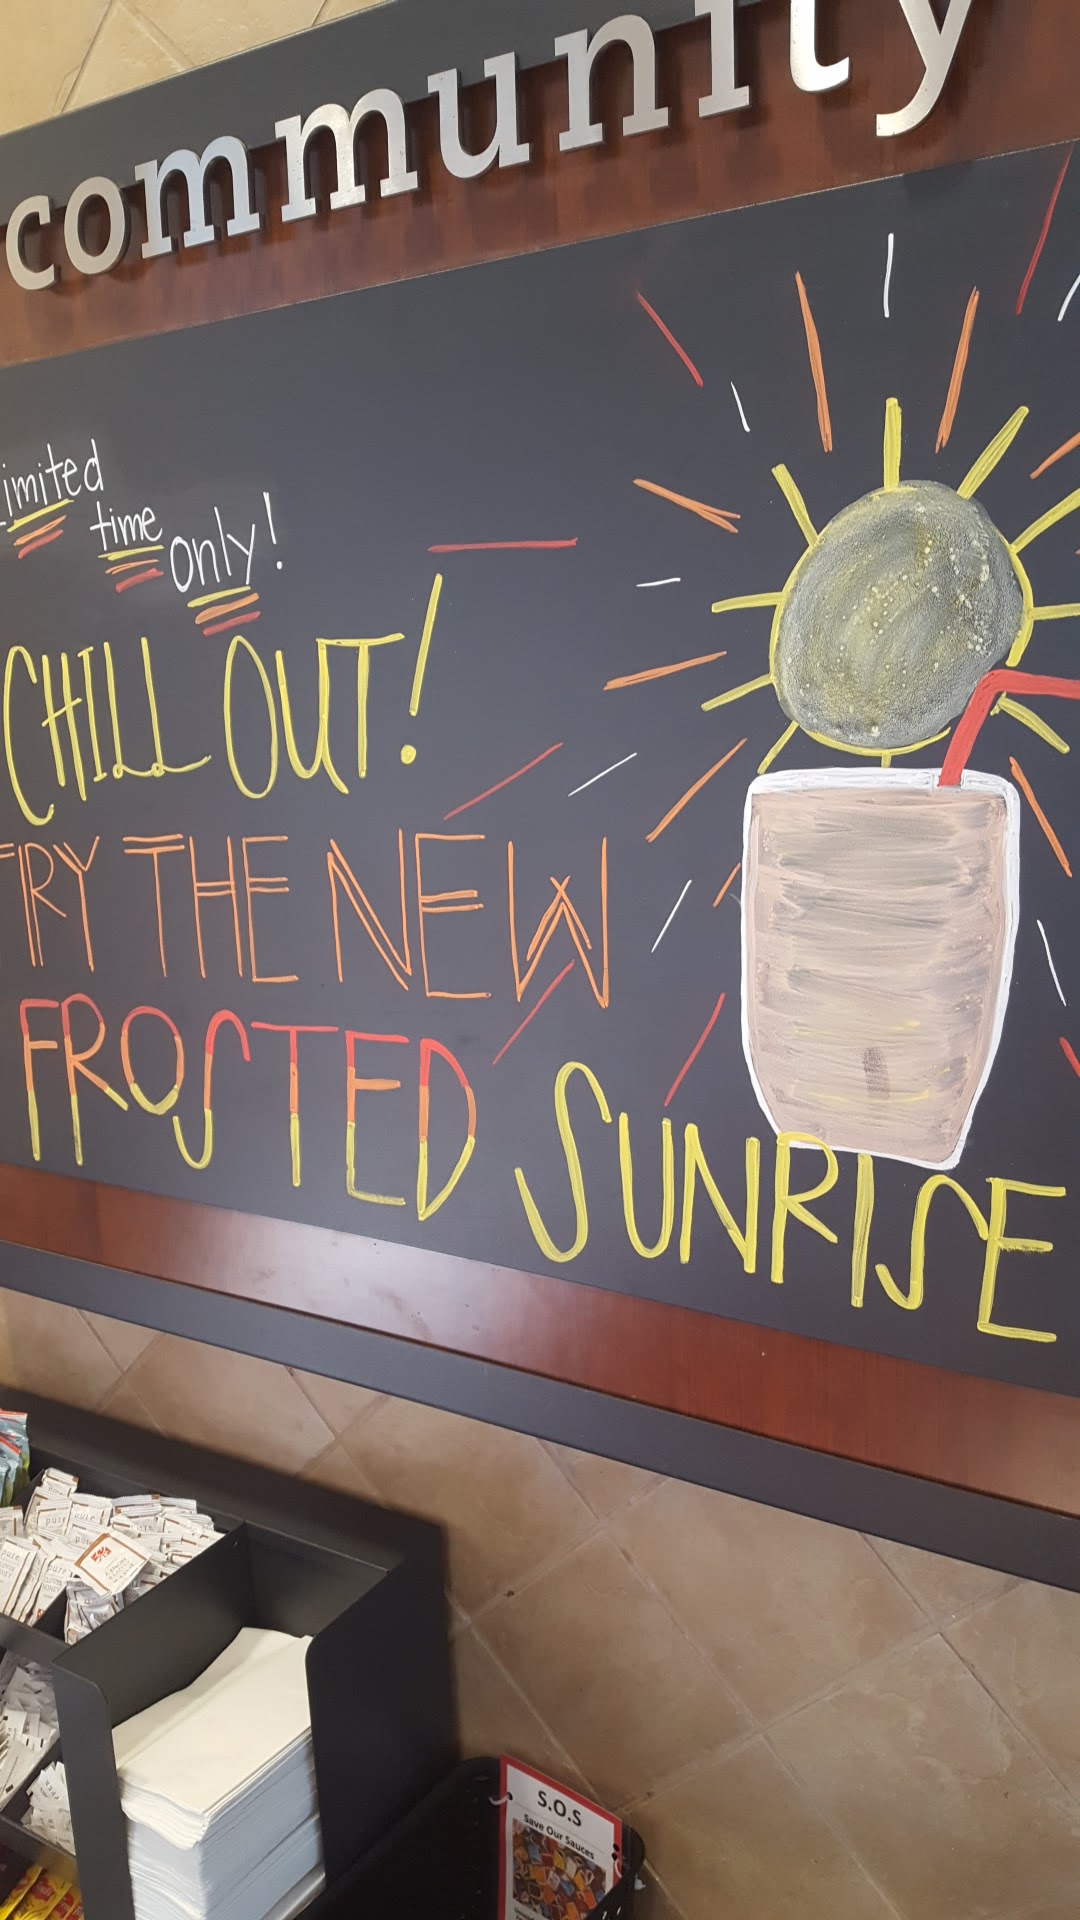 community
Limited
time
only!
CHILL OUT!
TRY THE NEW
FROSTED SUNRISE
pure
S.O.S
Save Our Sauces